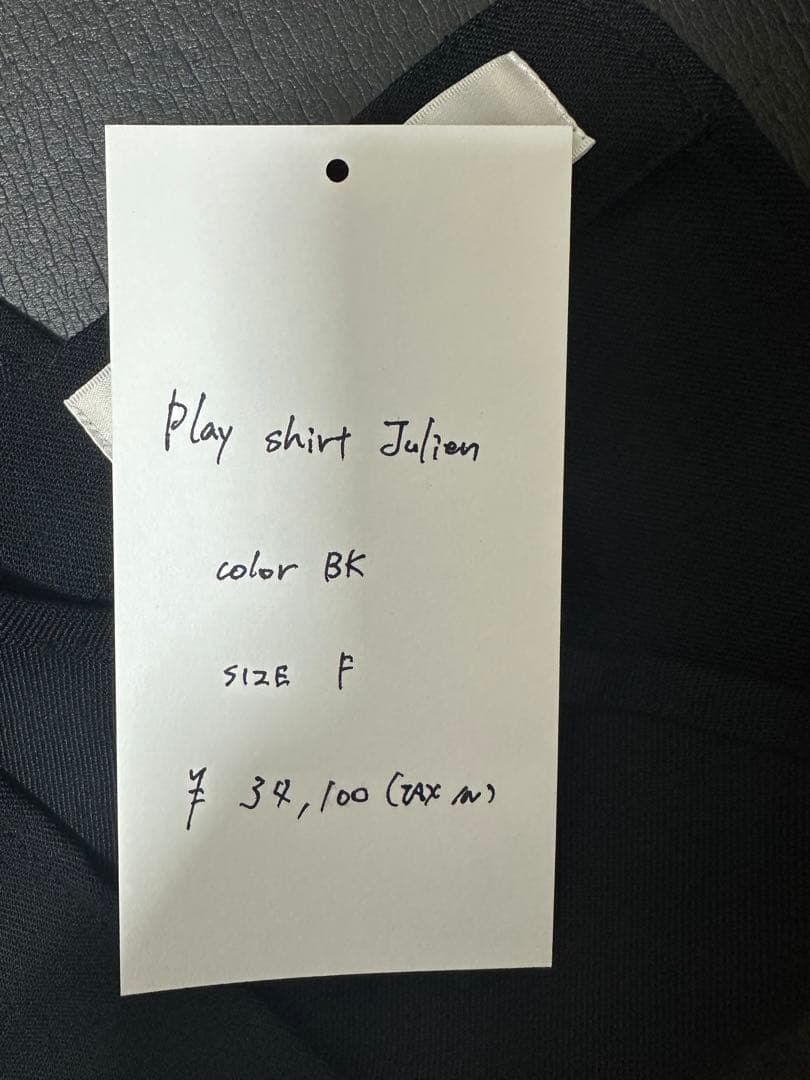 Play shirt Julien
color BK
SIZE F
¥ 34,100 (TAX IN)